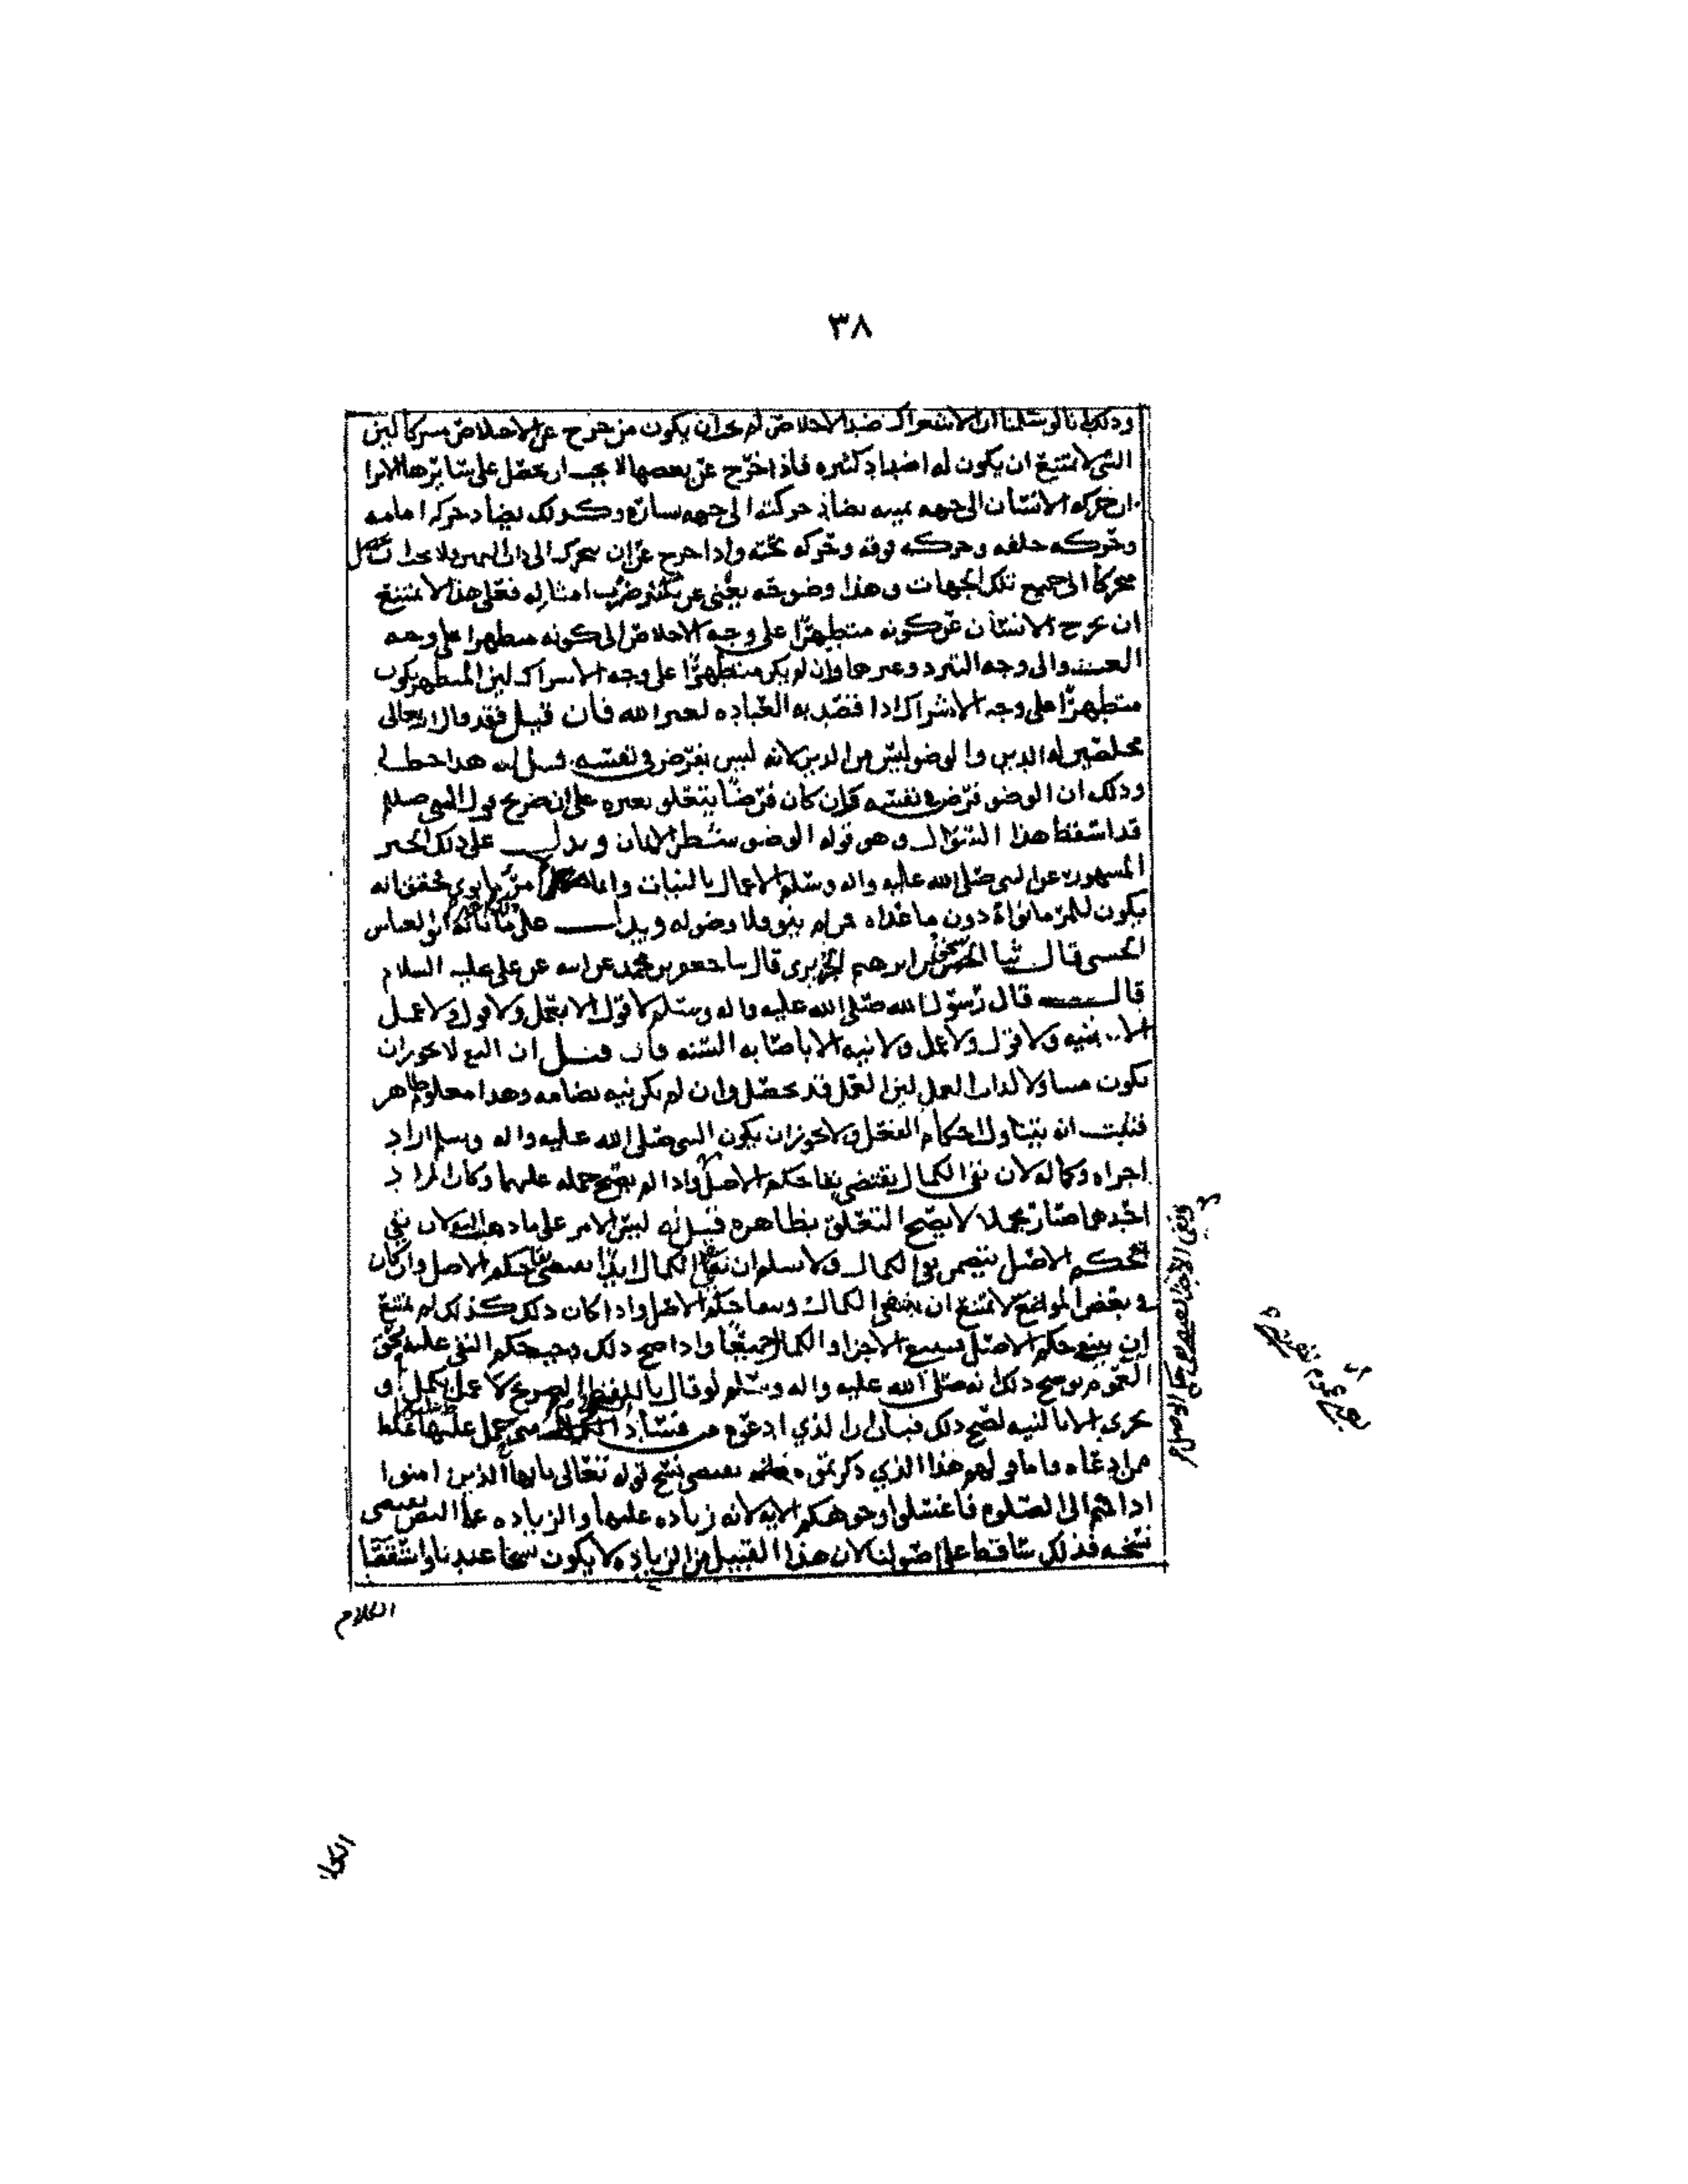 ٣٨
وذلك انا لو سلمنا ان الاشراك ضد الاخلاص لم يجب ان يكون من خرج عن الاخلاص مشركا لان
الشي لا يمتنع ان يكون له اضداد كثيره فاذا خرج عن بعضها لا يجب ان يحصل على سائرها الا ترا
ان حركه الانسان الى جهه يمينه يضاد حركته الى جهه يساره وكذلك يضاد حركه امامه
وحركه خلفه وحركه فوقه وحركه تحته واذا خرج عن ان يتحرك الى ذات اليمين فلا يجب
متحركا الى جميع تلك الجهات وهذا وضوحه يغني عن تكثير ضرب امثاله فعلى هذا لا يمتنع
ان يخرج الانسان عن كونه متطهرا على وجه الاخلاص الى كونه متطهرا على وجه
العبث والى وجه التبرد وغيرها وان لم يكن متطهرا على وجه الاشراك لان المتطهر يكون
متطهرا على وجه الاشراك اذا قصد به العباده لغير الله فان قيل فقد قال تعالى
مخلصين له الدين والوضو ليس من الدين لانه ليس بفرض في نفسه قيل له هذا خطا
وذلك ان الوضو فرض في نفسه وان كان فرضا يتعلق بغيره على ان صريح قول النبي صلم
قد اسقط هذا السؤال وهو قوله الوضو شطر الايمان ويدل على ذلك الخبر
المشهور عن النبي صلى الله عليه واله وسلم الاعمال بالنيات وانما امرئ ما نوى فحقق انه
يكون للمرء ما نواه دون ما عداه فمن لم ينو فلا وضو له ويدل على ذلك ما اخبرنا به ابو العباس
الحسني قال ثنا ابرهيم قال ثنا جعفر بن محمد عن ابيه عن علي عليه السلام
قال قال رسول الله صلى الله عليه واله وسلم لا قول الا بعمل ولا قول ولا عمل
الا بنيه ولا قول ولا عمل ولا نيه الا باصابه السنه فان قيل ان النفي لا يجوز ان
يكون متناولا لذات العمل لان العمل قد يحصل وان لم يكن نيه تضامه وهذا معلوم ظاهر
فثبت انه يتناول احكام الفعل ولا يجوز ان يكون النبي صلى الله عليه واله وسلم اراد
اجزاه وكماله لان نفي الكمال يقتضي بقا حكم الاصل واذا لم يصح حمله عليهما وكان المراد
احدهما صار مجملا لا يصح التعلق بظاهره قيل له ليس الامر على ما ذهبت اليه لان نفي
حكم الاصل يتضمن نفي الكمال ولا نسلم ان نفي الكمال ابدا يقتضي بقا حكم الاصل وان كان
في بعض المواضع لا يمتنع ان ينتفي الكمال وبقا حكم الاصل واذا كان ذلك كذلك لم يمتنع
ان ينفي حكم الاصل الاجزا والكمال جميعا واذا صح ذلك وجب حكم النفي عليه بحق
العموم يوضح ذلك انه صلى الله عليه واله وسلم لو قال باللفظ الصريح لا عمل يكمل او
يجزي الا بالنيه لصح ذلك فبان ان الذي ادعوه من فساد غلط
من ادعاه واما قولهم هذا الذي ذكرتموه يقتضي نسخ قوله تعالى يايها الذين امنوا
اذا قمتم الى الصلوه فاغسلوا وجوهكم الايه لانه زياده عليها والزياده على النص يقتضي
نسخه فذلك ساقط على اصولنا لان هذا القبيل من الزياده لا يكون نسخا عندنا واستقصا
الكلام